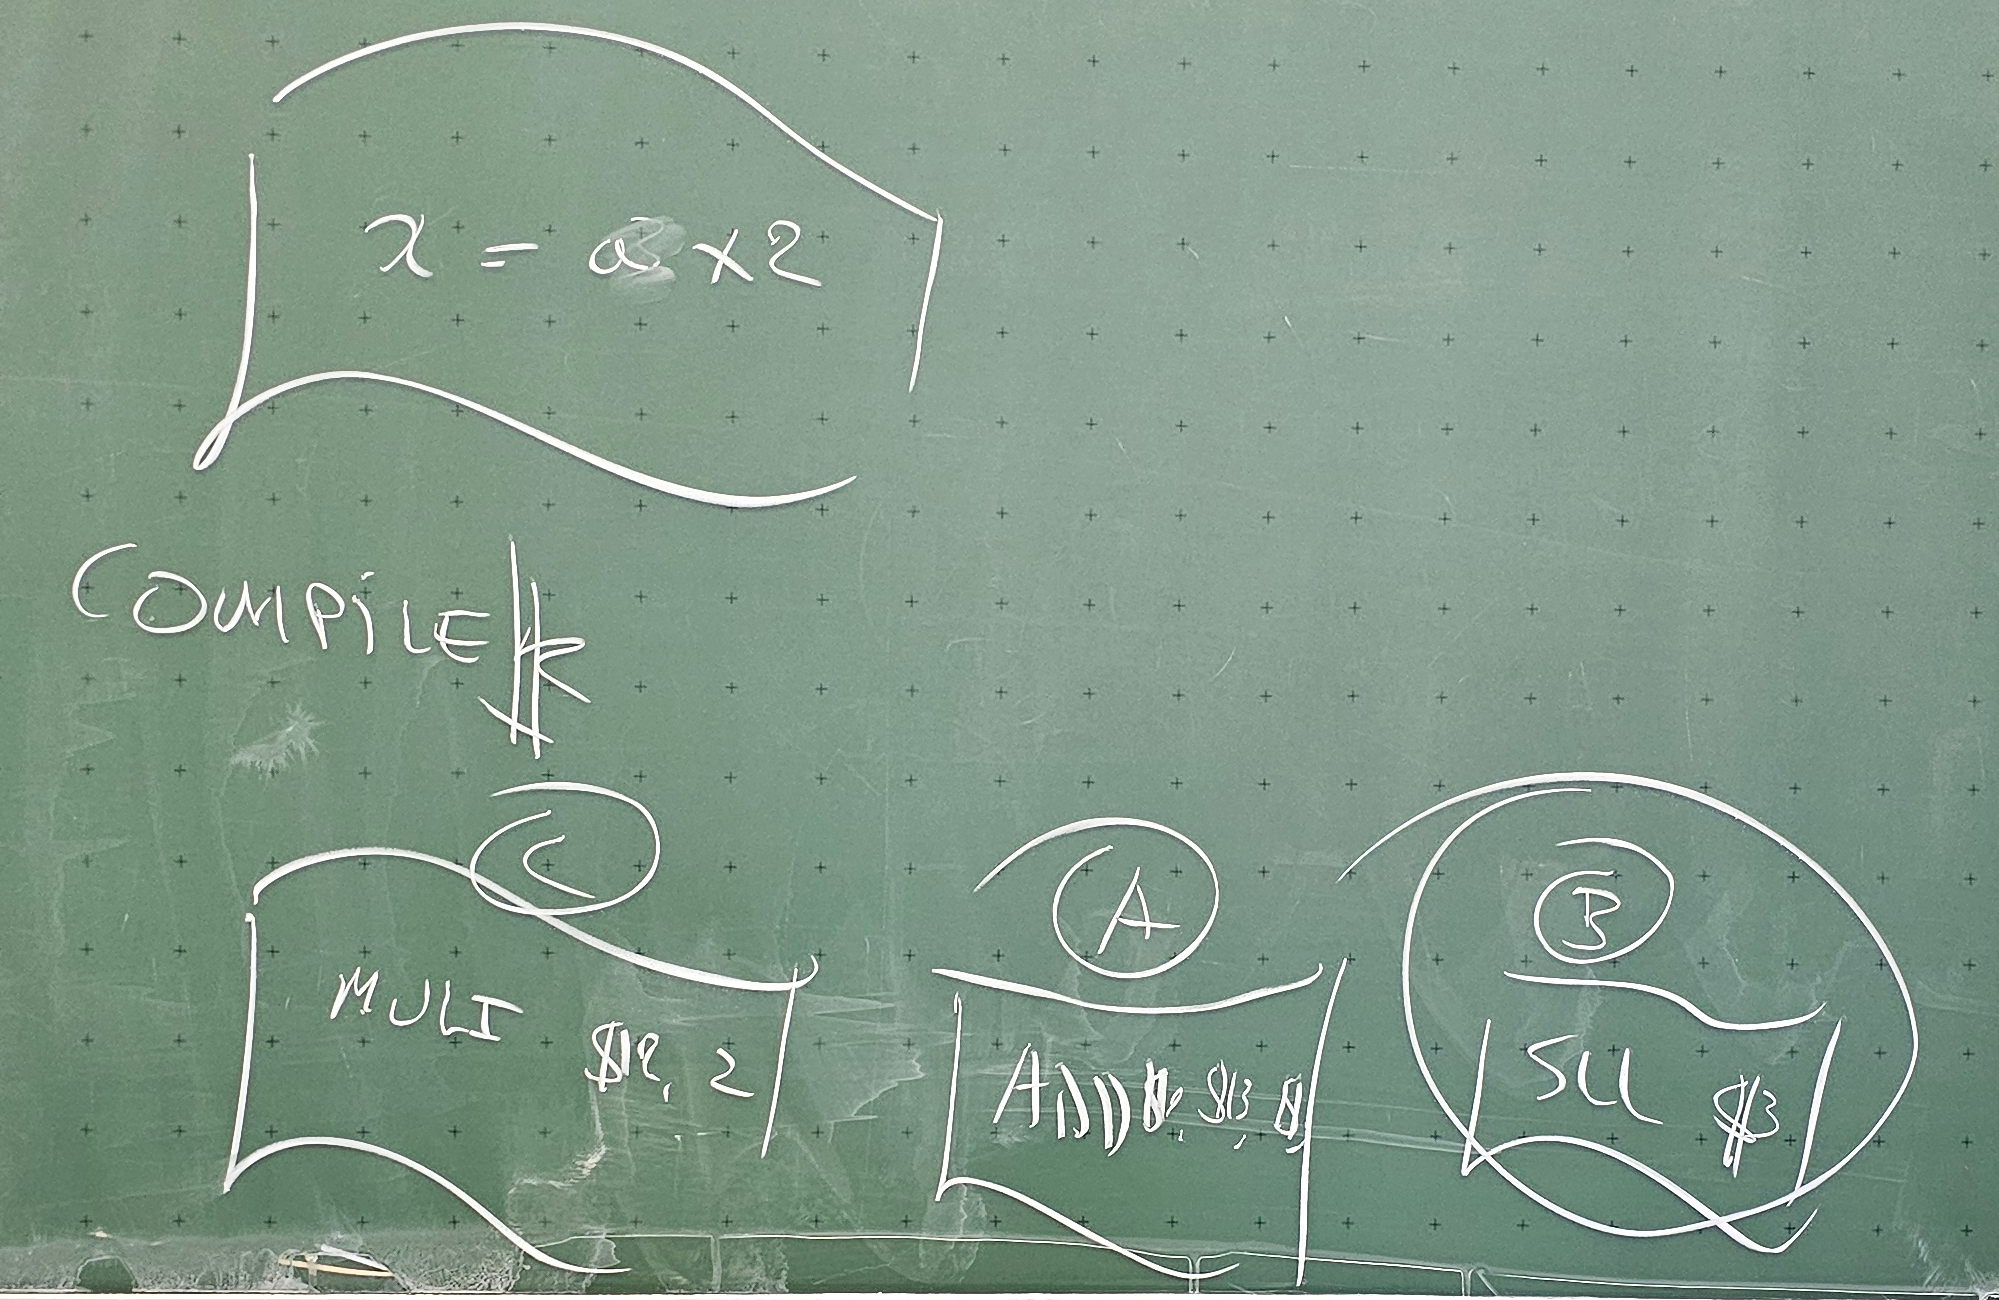 x = a × 2
COMPILER
C
MULI $12, 2
A
ADD $13,
B
SLL $3